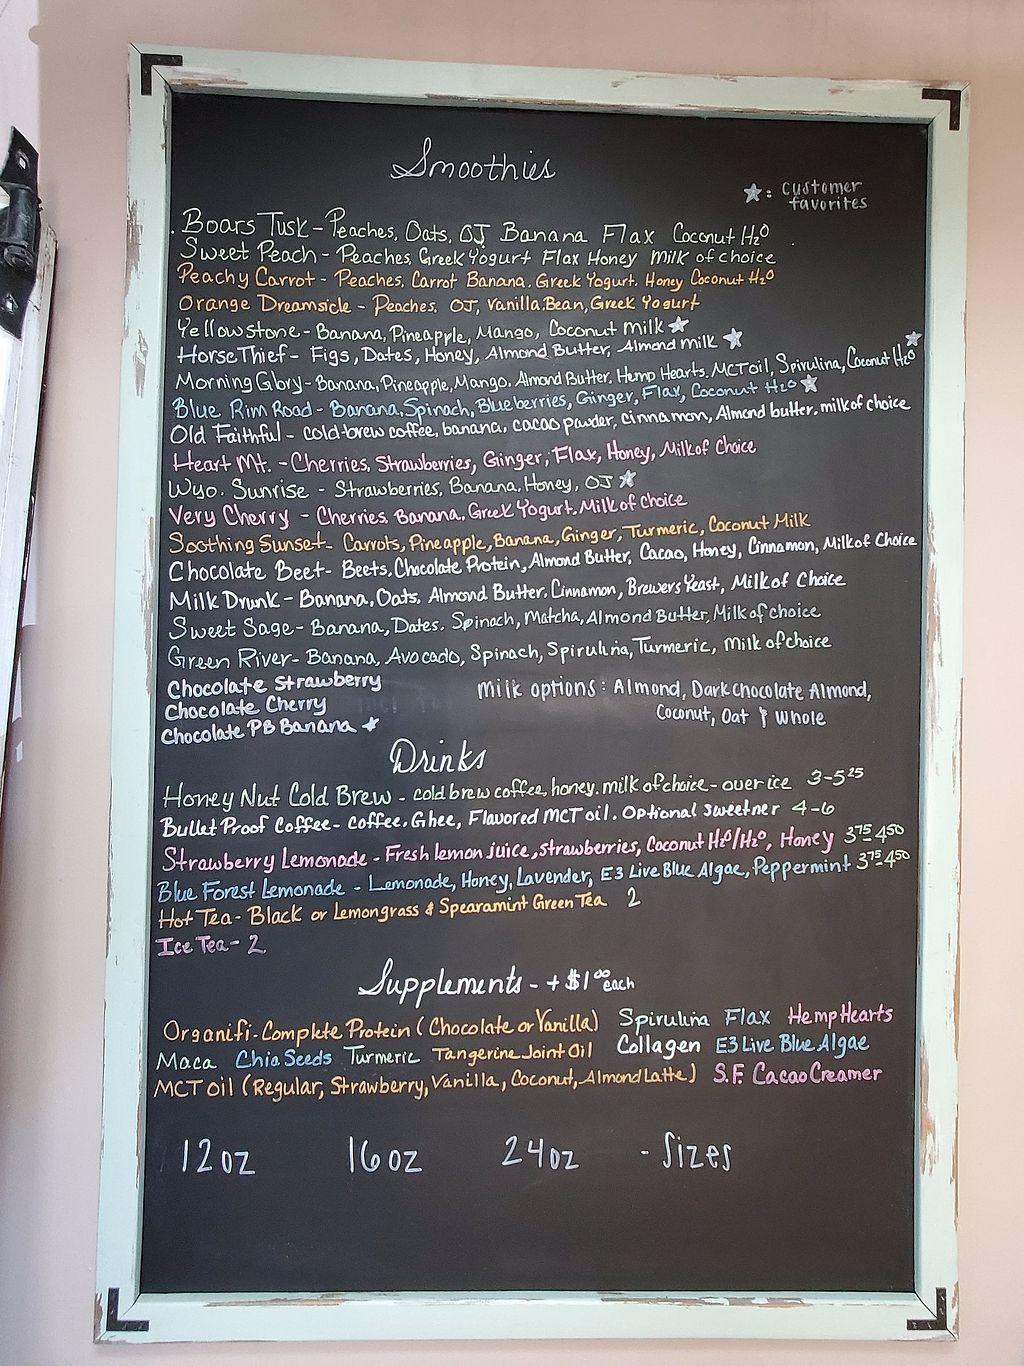 Smoothies
☆ = customer
favorites
Boars Tusk - Peaches, Oats, OJ Banana Flax Coconut H₂O
Sweet Peach - Peaches, Greek Yogurt Flax Honey Milk of choice
Peachy Carrot - Peaches, Carrot Banana, Greek Yogurt, Honey Coconut H₂O
Orange Dreamsicle - Peaches, OJ, Vanilla Bean, Greek Yogurt
Yellowstone - Banana, Pineapple, Mango, Coconut milk ☆
Horse Thief - Figs, Dates, Honey, Almond Butter, Almond milk ☆
Morning Glory - Banana, Pineapple, Mango, Almond Butter, Hemp Hearts, MCT oil, Spirulina, Coconut H₂O ☆
Blue Rim Road - Banana, Spinach, Blueberries, Ginger, Flax, Coconut H₂O ☆
Old Faithful - cold brew coffee, banana, cacao powder, cinnamon, Almond butter, milk of choice
Heart Mt. - Cherries, Strawberries, Ginger, Flax, Honey, Milk of choice
Wyo. Sunrise - Strawberries, Banana, Honey, OJ ☆
Very Cherry - Cherries, Banana, Greek Yogurt, Milk of choice
Soothing Sunset - Carrots, Pineapple, Banana, Ginger, Turmeric, Coconut Milk
Chocolate Beet - Beets, Chocolate Protein, Almond Butter, Cacao, Honey, Cinnamon, Milk of Choice
Milk Drunk - Banana, Oats, Almond Butter, Cinnamon, Brewers Yeast, Milk of Choice
Sweet Sage - Banana, Dates, Spinach, Matcha, Almond Butter, Milk of choice
Green River - Banana, Avocado, Spinach, Spirulina, Turmeric, Milk of choice
Chocolate Strawberry
Chocolate Cherry
Chocolate PB Banana ☆
Milk options: Almond, Dark chocolate Almond,
Coconut, Oat & Whole
Drinks
Honey Nut Cold Brew - cold brew coffee, honey, milk of choice - over ice 3-5²⁵
Bullet Proof Coffee - coffee, Ghee, Flavored MCT oil. Optional sweetner 4-6
Strawberry Lemonade - Fresh lemon juice, strawberries, Coconut H₂O/H₂O, Honey 3⁷⁵-4⁵⁰
Blue Forest Lemonade - Lemonade, Honey, Lavender, E3 Live Blue Algae, Peppermint 3⁷⁵-4⁵⁰
Hot Tea - Black or Lemongrass & Spearamint Green Tea 2
Ice Tea - 2
Supplements - + $1⁰⁰ each
Organifi - Complete Protein (Chocolate or Vanilla) Spirulina Flax Hemp Hearts
Maca Chia Seeds Turmeric Tangerine Joint Oil Collagen E3 Live Blue Algae
MCT oil (Regular, Strawberry, Vanilla, Coconut, Almond Latte) S.F. Cacao Creamer
12oz 16oz 24oz - Sizes